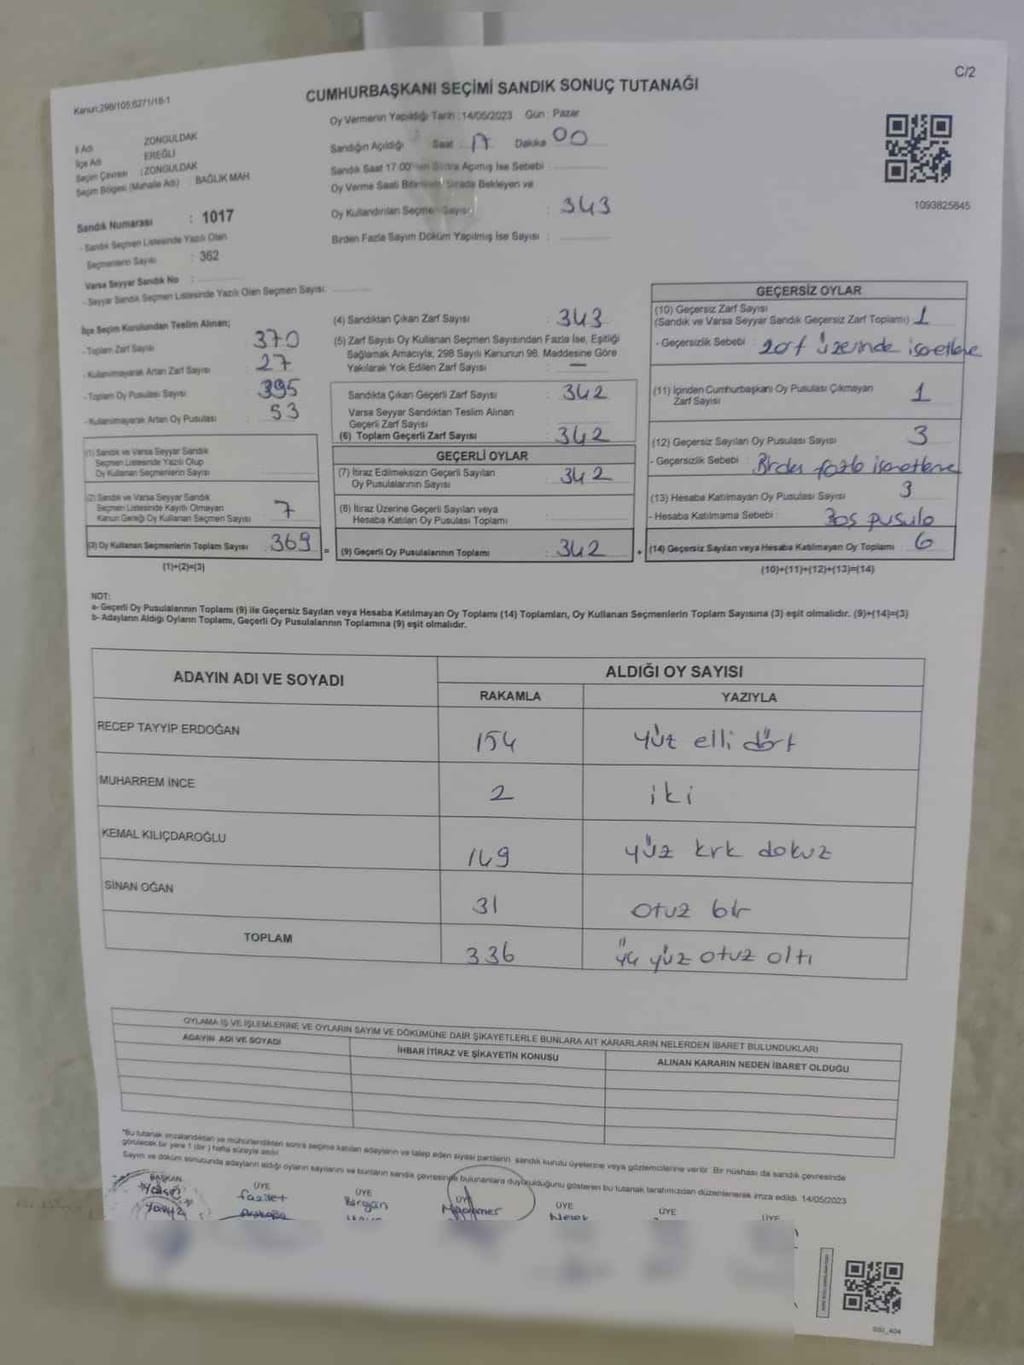 C/2
Kanun:298/105,6271/18-1
CUMHURBAŞKANI SEÇİMİ SANDIK SONUÇ TUTANAĞI
Oy Vermenin Yapıldığı Tarih :14/05/2023 Gün : Pazar
İl Adı ZONGULDAK
İlçe Adı EREĞLİ
Seçim Çevresi :ZONGULDAK
Seçim Bölgesi (Mahalle Adı) : BAĞLIK MAH
Sandığın Açıldığı Saat 17 Dakika 00
Sandık Saat 17:00'den Sonra Açılmış İse Sebebi
Oy Verme Saati Bitiminde Sırada Bekleyen ve
Oy Kullandırılan Seçmen Sayısı : 343
Birden Fazla Sayım Döküm Yapılmış İse Sayısı :
1093825845
Sandık Numarası : 1017
- Sandık Seçmen Listesinde Yazılı Olan
Seçmenlerin Sayısı : 362
Varsa Seyyar Sandık No :
- Seyyar Sandık Seçmen Listesinde Yazılı Olan Seçmen Sayısı:
İlçe Seçim Kurulundan Teslim Alınan;
- Toplam Zarf Sayısı 370
- Kullanılmayarak Artan Zarf Sayısı 27
- Toplam Oy Pusulası Sayısı 395
- Kullanılmayarak Artan Oy Pusulası 53
(1) Sandık ve Varsa Seyyar Sandık
Seçmen Listesinde Yazılı Olup
Oy Kullanan Seçmenlerin Sayısı
(2) Sandık ve Varsa Seyyar Sandık
Seçmen Listesinde Kayıtlı Olmayan
Kanun Gereği Oy Kullanan Seçmen Sayısı 7
(3) Oy Kullanan Seçmenlerin Toplam Sayısı : 369 =
(1)+(2)=(3)
(4) Sandıktan Çıkan Zarf Sayısı 343
(5) Zarf Sayısı Oy Kullanan Seçmen Sayısından Fazla İse, Eşitliği
Sağlamak Amacıyla, 298 Sayılı Kanunun 98. Maddesine Göre
Yakılarak Yok Edilen Zarf Sayısı : —
Sandıkta Çıkan Geçerli Zarf Sayısı : 342
Varsa Seyyar Sandıktan Teslim Alınan
Geçerli Zarf Sayısı
(6) Toplam Geçerli Zarf Sayısı : 342
GEÇERLİ OYLAR
(7) İtiraz Edilmeksizin Geçerli Sayılan
Oy Pusulalarının Sayısı : 342
(8) İtiraz Üzerine Geçerli Sayılan veya
Hesaba Katılan Oy Pusulası Toplamı
(9) Geçerli Oy Pusulalarının Toplamı : 342 +
GEÇERSİZ OYLAR
(10) Geçersiz Zarf Sayısı
(Sandık ve Varsa Seyyar Sandık Geçersiz Zarf Toplamı) 1
- Geçersizlik Sebebi : zarf üzerinde isaretleme
(11) İçinden Cumhurbaşkanı Oy Pusulası Çıkmayan
Zarf Sayısı : 1
(12) Geçersiz Sayılan Oy Pusulası Sayısı : 3
- Geçersizlik Sebebi : Birden fazla isaretleme
(13) Hesaba Katılmayan Oy Pusulası Sayısı : 3
- Hesaba Katılmama Sebebi : Bos pusula
(14) Geçersiz Sayılan veya Hesaba Katılmayan Oy Toplamı 6
(10)+(11)+(12)+(13)=(14)
NOT:
a- Geçerli Oy Pusulalarının Toplamı (9) ile Geçersiz Sayılan veya Hesaba Katılmayan Oy Toplamı (14) Toplamları, Oy Kullanan Seçmenlerin Toplam Sayısına (3) eşit olmalıdır. (9)+(14)=(3)
b- Adayların Aldığı Oyların Toplamı, Geçerli Oy Pusulalarının Toplamına (9) eşit olmalıdır.
ADAYIN ADI VE SOYADI
ALDIĞI OY SAYISI
RAKAMLA YAZIYLA
RECEP TAYYİP ERDOĞAN 154 yüz elli dört
MUHARREM İNCE 2 iki
KEMAL KILIÇDAROĞLU 149 yüz kırk dokuz
SİNAN OĞAN 31 otuz bir
TOPLAM 336 üç yüz otuz altı
OYLAMA İŞ VE İŞLEMLERİNE VE OYLARIN SAYIM VE DÖKÜMÜNE DAİR ŞİKAYETLERLE BUNLARA AİT KARARLARIN NELERDEN İBARET BULUNDUKLARI
ADAYIN ADI VE SOYADI İHBAR İTİRAZ VE ŞİKAYETİN KONUSU ALINAN KARARIN NEDEN İBARET OLDUĞU
*Bu tutanak imzalandıktan ve mühürlendikten sonra seçime katılan adayların ve talep eden siyasi partilerin sandık kurulu üyelerine veya gözlemcilerine verilir. Bir nüshası da sandık çevresinde
görülecek bir yere 1 (bir) hafta süreyle asılır.
Sayım ve döküm sonucunda adayların aldığı oyların sayılarını ve bunların sandık çevresinde bulunanlara duyurulduğunu gösteren bu tutanak tarafımızdan düzenlenerek imza edildi. 14/05/2023
BAŞKAN ÜYE ÜYE ÜYE ÜYE ÜYE ÜYE
Yavuz fazilet